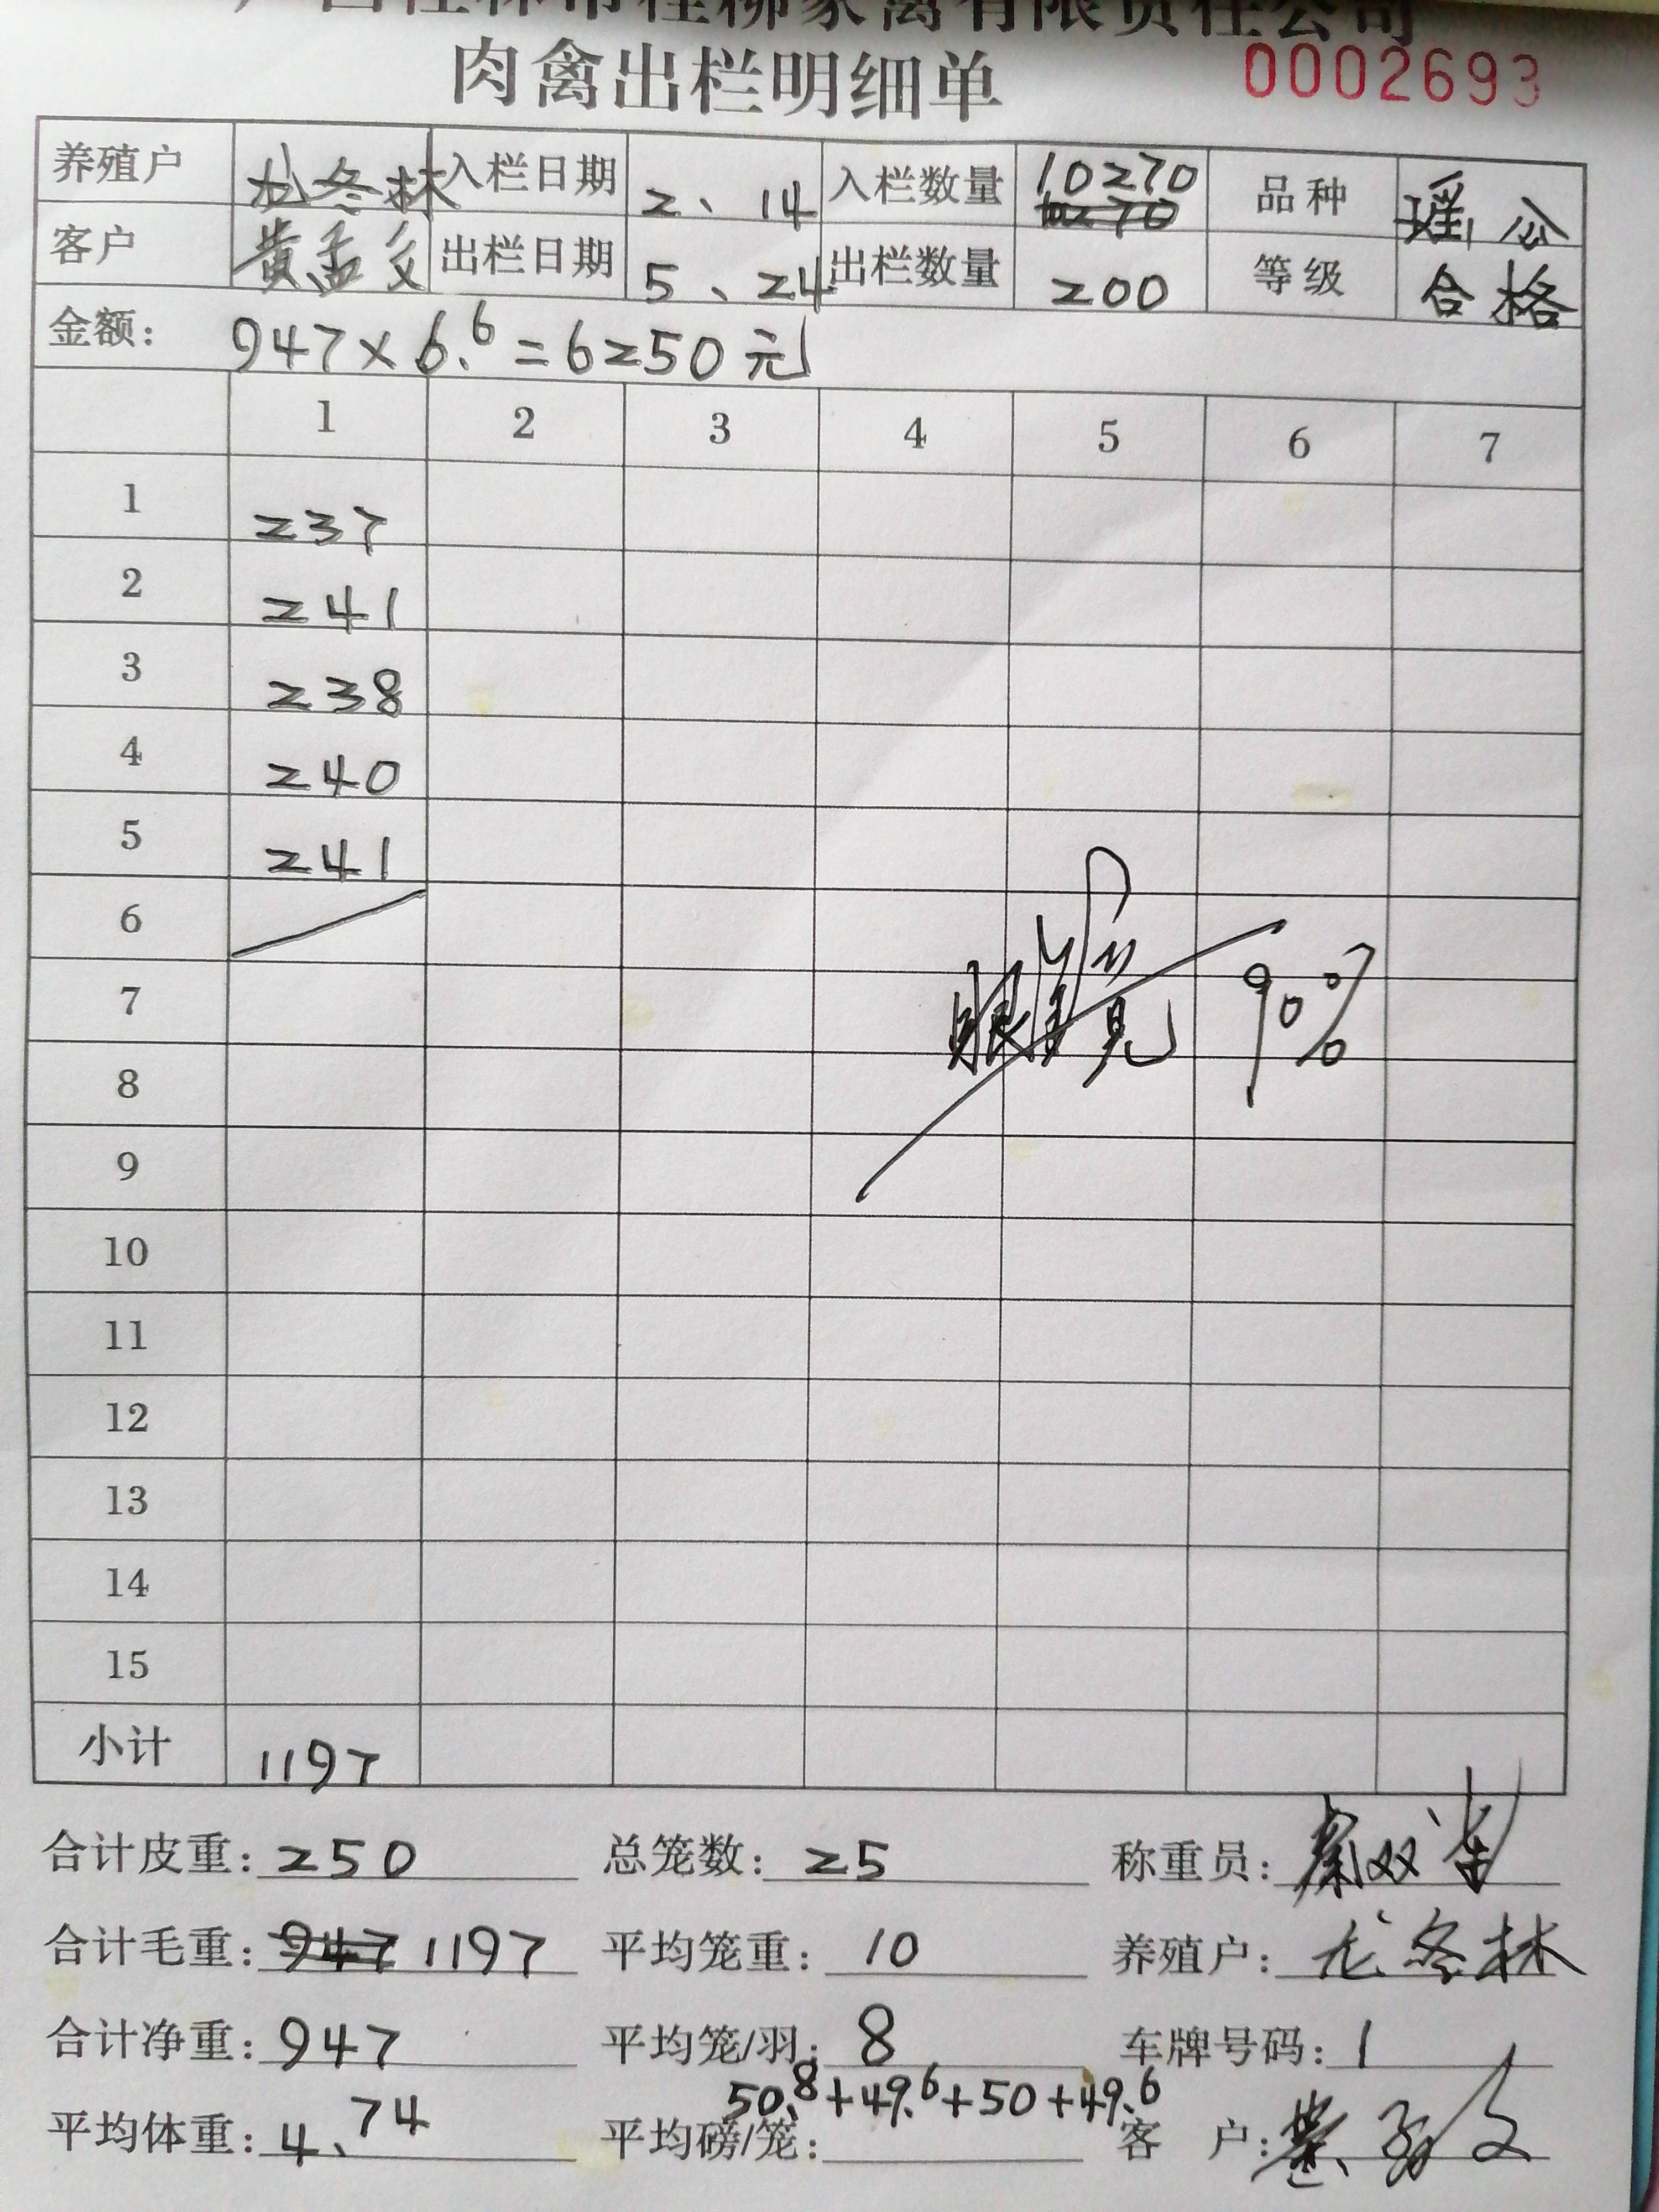 广西桂林市桂柳家禽有限责任公司
肉禽出栏明细单 0002693
养殖户 龙冬林 入栏日期 2、14 入栏数量 10270 品种 瑶公
客户 黄孟文 出栏日期 5、24 出栏数量 200 等级 合格
金额: 947×6.6=6250元
1 2 3 4 5 6 7
1 237
2 241
3 238
4 240
5 241
6
7 90%
8
9
10
11
12
13
14
15
小计 1197
合计皮重: 250 总笼数: 25 称重员:
合计毛重: 947 1197 平均笼重: 10 养殖户: 龙冬林
合计净重: 947 平均笼/羽: 8 车牌号码: 1
50.8+49.6+50+49.6
平均体重: 4、74 平均磅/笼: 客 户: